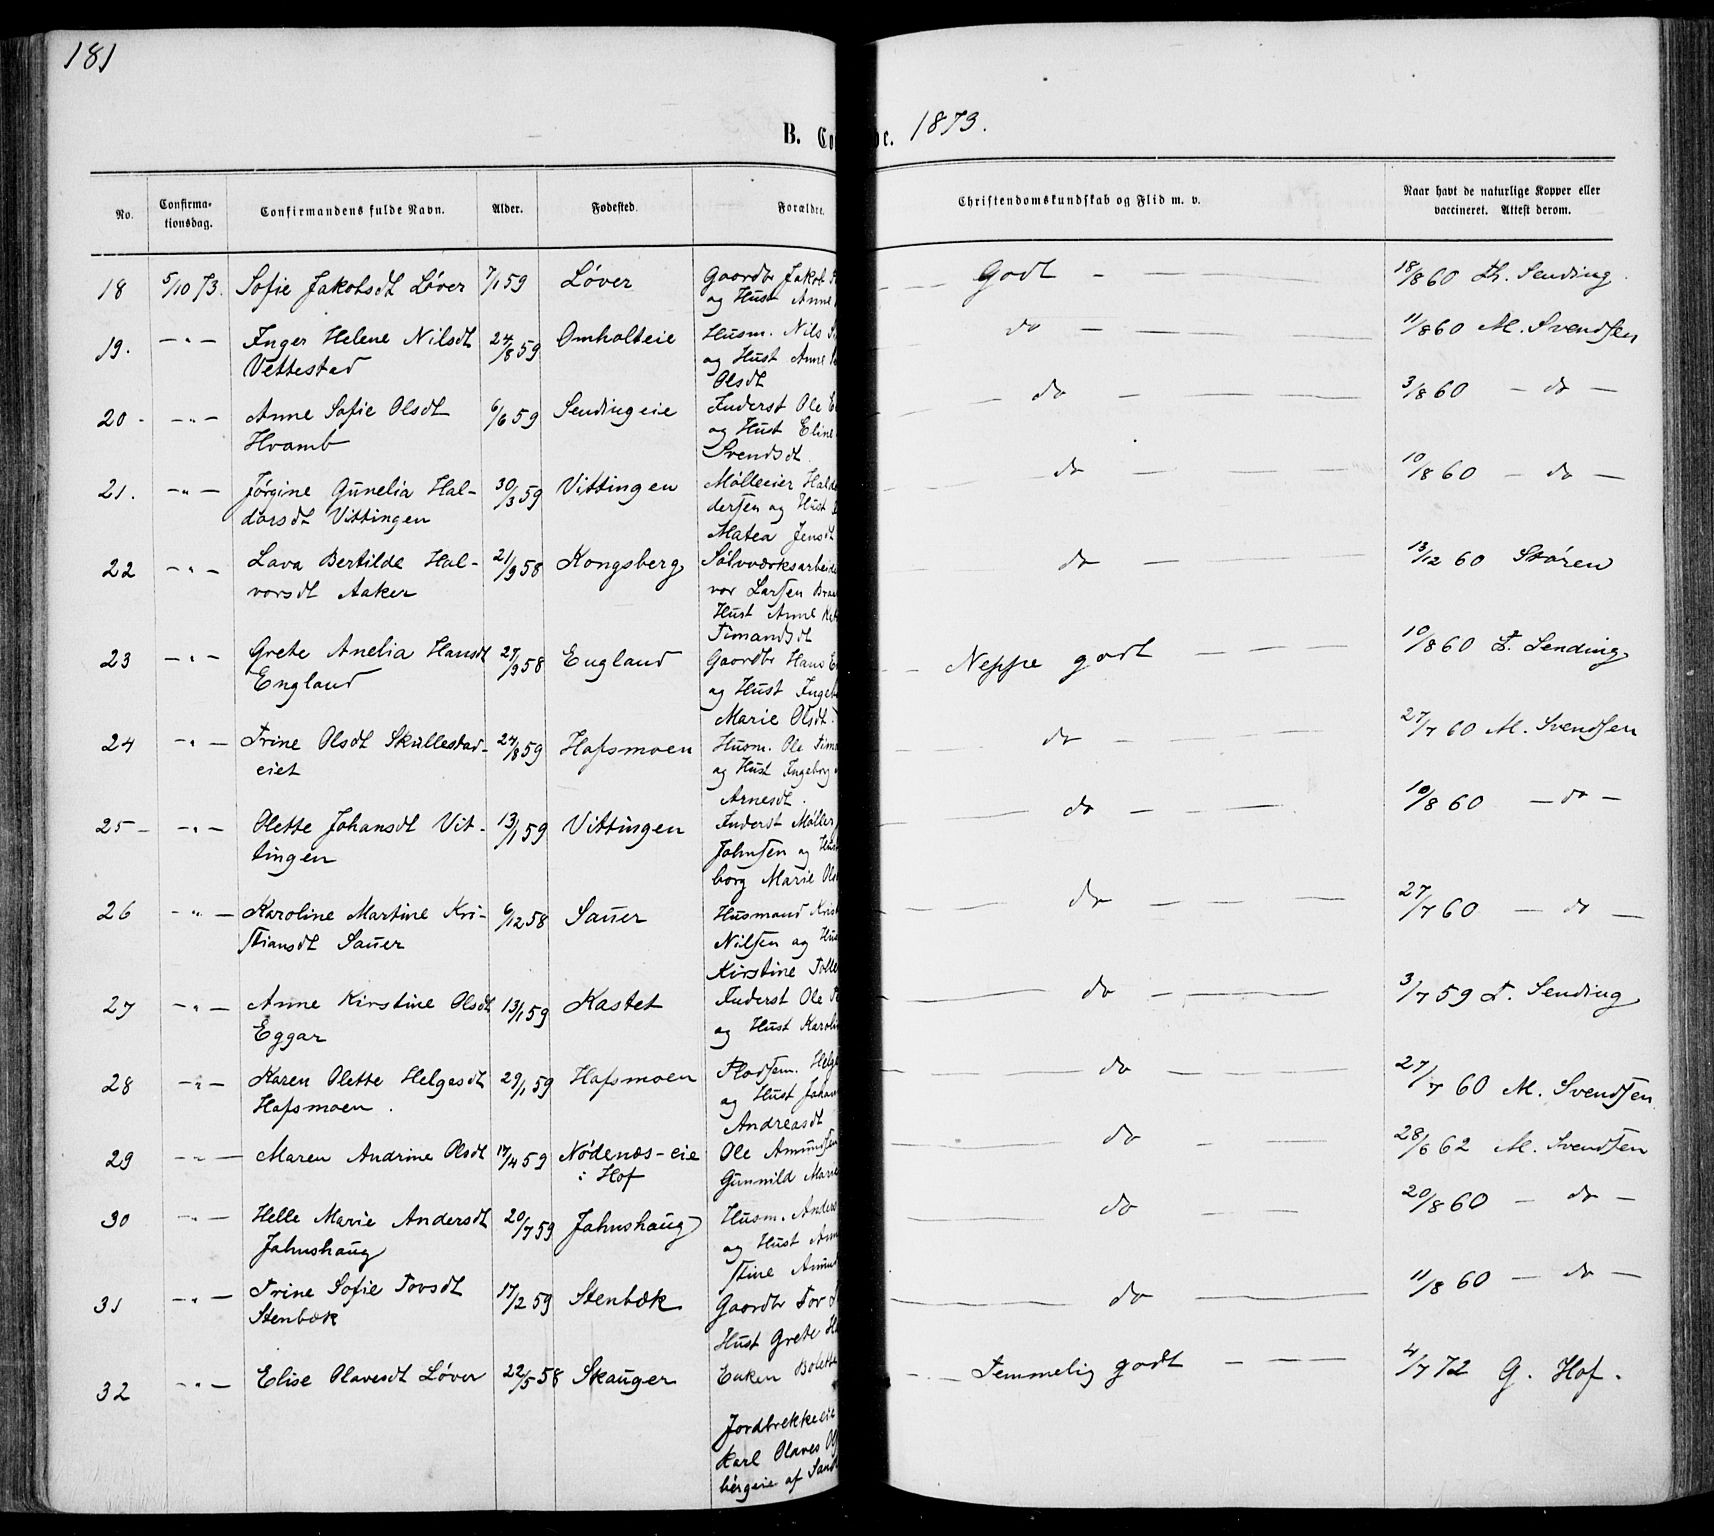 181
B. Co
de. 1873.
No.
Confirma-
tionsdag.
Confirmandens fulde Navn.
Alder.
Fødested.
Forældre.
Christendomskundskab og Flid m. v.
Naar havt de naturlige Kopper eller
vaccineret. Attest derom.
18 5/10 73. Sofie Jakobsdt Løver 7/1 59 Løver Gaardbr Jakob Godt - — — — 18/8 60 Th. Sending
og Hust Anne
19. — " — Inger Helene Nilsdt 24/8 59 Omholteie Husm. Nils do — — — 11/8 60 M. Svendsen
Vettestad og Hust Anne
Olsdt
20 - — " — Anne Sofie Olsdt 6/6 59 Sendingeie Inderst Ole do — — — 3/8 60 — do —
Hvamb og Hust Eline
Svendsdt.
21. — " — Jørgine Gunelia Hal- 30/3 59 Vittingen Mølleeier Hald do — — — 10/8 60 — do —
dorsdt Vittingen dersen og Hust
Matea Jensdt
22 — " — Lava Bertilde Hal- 21/9 58 Kongsberg Sølvværksarbeide do — — — 13/12 60 Støren
vorsdt Aaker vor Larsen Bra
Hust Anne Kat
Timandsdt
23 — " — Grete Anelia Hansdt 27/9 58 England Gaardbr Hans Neppe godt — — — 10/8 60 T. Sending
England og Hust Ingeb
Marie Olsdt.
24 — " — Trine Olsdt Skullestad- 24/8 59 Hafsmoen Husm. Ole Tim do — — — 27/7 60 M. Svendsen
eiet og Hust Ingeborg
Arnesdt.
25 — — " — Olette Johansdt Vit- 13/1 59 Vittingen Inderst Møller do — — — 10/8 60 — do —
tingen Johnsen og Hus
borg Marie Ols
26 — " — Karoline Martine Kri- 6/12 58 Sauer Husmand Krist do — — — 27/7 60 — do —
stiansdt Sauer Nilsen og Hus
Kirstine Tolle
27 — " — Anne Kirstine Olsdt 13/1 59 Kastet Inderst Ole do — — — 3/7 59 T. Sending
Eggar og Hust Karolin
28 — " — Karen Olette Helgesdt 29/1 59 Hafsmoen Pladsem. Helge do — — — 27/7 60 M. Svendsen
Hafsmoen. og Hust Johan
Andreasdt
29 — " — Maren Andrine Olsdt 17/4 59 Nødenæs-eie Ole Amundsen do — — 28/6 62 M. Svendsen
i Hof Gunnild Marie
30 — " — Helle Marie Andersdt 20/7 59 Jahnshaug Husm. Anders do — — 20/8 60 — do —
Jahnshaug og Hust Ann
stine Amund
31 — " — Trine Sofie Tovsdt 17/2 59 Stenbæk Gaardbr Tov do — 11/8 60 — do —
Stenbæk Hust Grete
32 — " — Elise Olavesdt Løver 22/5 58 Skauger Enken Bolette Temmelig godt — — — 4/7 72 G. Hof.
Jordbrekkeeie
Karl Olaves
bergeie af Sand